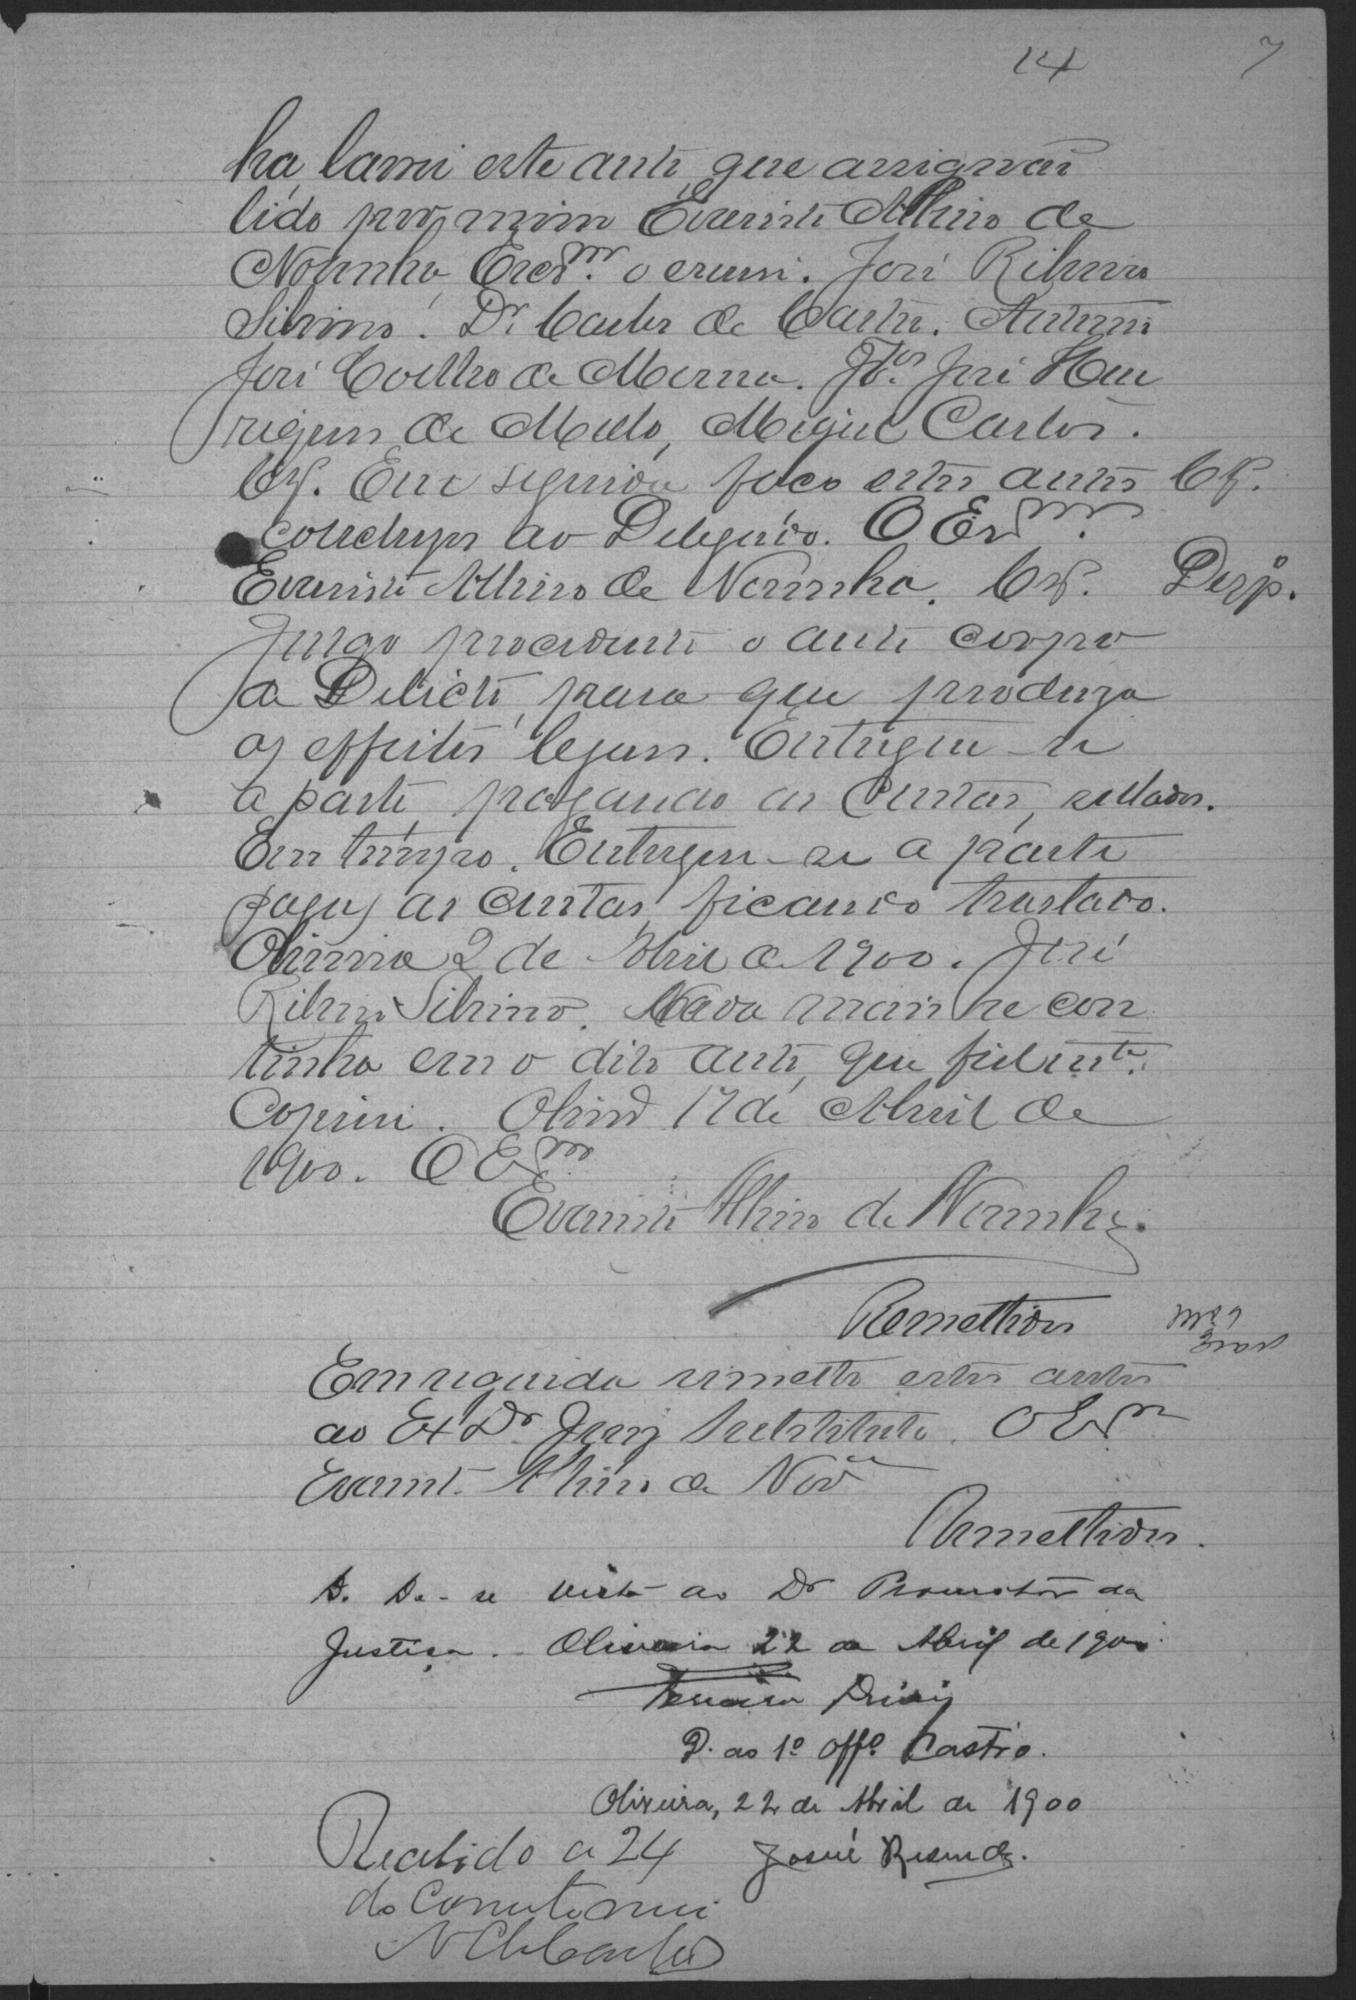 14 7
ha, lavrei este auto, que assignão
lido por mim Evaristo Albino de
Noronha, Escr.m o escrevi. José Ribeiro
Silvino. Dr. Carlos de Castro. Antonio
José Coelho de Moura. Tos. José Hen
riques de Mello, Miguel Carlos.
Clz. Em seguida faço estes autos Clz.
conclusos ao Delegado. O Escr.m
Evaristo Albino de Noronha. Clz. Desp.o
Julgo procedente o auto corpo
de Delicto, para que produza
os effeitos legaes. Entregue-se
a parte, pagando as custas, sellados.
Em tempo. Entregue-se a parte
pagas as custas, ficando traslado.
Oliveira 2 de Abril de 1900. José
Ribeiro Silvino. Nada mais se con
tinha em o dito auto, que fielmte.
Copiei. Olivr.a 17 de Abril de
1900. O Escr.m
Evaristo Albino de Noronha.
Remettidos
Em seguida remetto estes autos
ao Ex Dr Juiz Substituto. O Escr.m
Evarist. Albino de Nor.a
Remettidos.
D. Dê-se vista ao Dr Promotor da
Justiça. Oliveira 22 de Abril de 1900.
Ferreira
D. ao 1º Offº Castro.
Oliveira, 22 de Abril de 1900
Recebido a 24 Josué Resende.
do Corrente mez